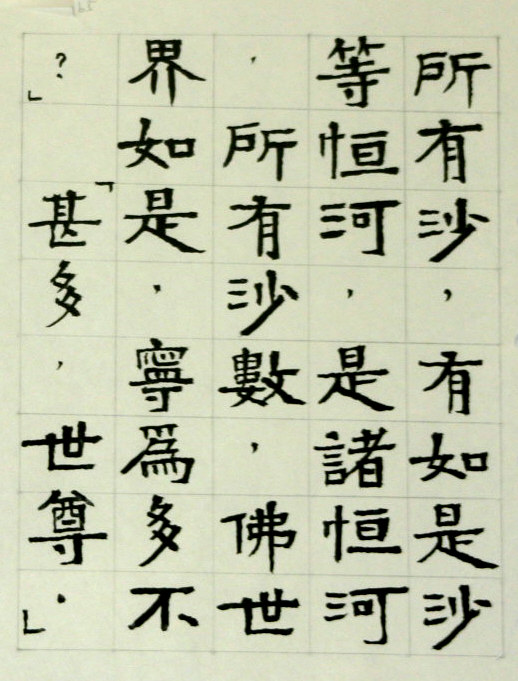 所有沙，有如是沙
等恒河，是諸恒河
，所有沙數，佛世
界如是，寧爲多不
？」「甚多，世尊．」